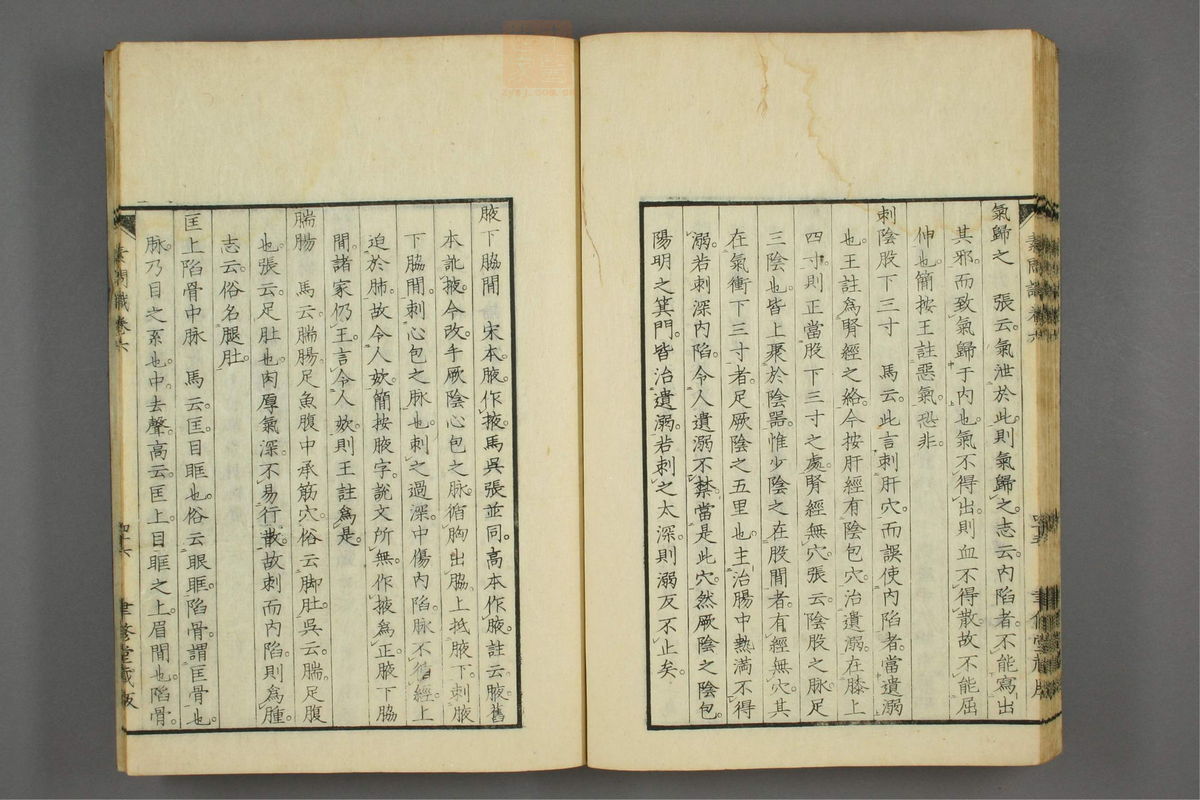 氣歸之　張云。氣泄於此。則氣歸之。志云。內陷者。不能寫出
其邪。而致氣歸于內也。氣不得出。則血不得散。故不能屈
伸也。簡按王註惡氣。恐非。
刺陰股下三寸　馬云。此言刺肝穴。而誤使內陷者。當遺溺
也。王註爲腎經之絡。今按肝經有陰包穴。治遺溺。在膝上
四寸。則正當股下三寸之處。腎經無穴。張云。陰股之脉。足
三陰也。皆上聚於陰器。惟少陰之在股間者。有經無穴。其
在氣衝下三寸者。足厥陰之五里也。主治腸中熱滿不得
溺。若刺深內陷。令人遺溺不禁。當是此穴。然厥陰之陰包。
陽明之箕門。皆治遺溺。若刺之太深。則溺反不止矣。
素問識卷六
四十五
聿修堂藏版
腋下脇間　宋本。腋。作掖。馬吳張並同。高本作腋。註云。腋舊
本訛掖。今改。手厥陰心包之脉。循胸出脇。上抵腋下。刺腋
下脇間。刺心包之脉也。刺之過深。中傷內陷。脉不循經。上
迫於肺。故令人欬。簡按腋字。說文所無。作掖爲正。腋下脇
間。諸家仍王言。令人欬。則王註爲是。
腨腸　馬云。腨腸。足魚腹中承筋穴。俗云脚肚。吳云。腨。足腹
也。張云。足肚也。肉厚氣深。不易行散。故刺而內陷。則爲腫。
志云。俗名腿肚。
匡上陷骨中脉　馬云。匡。目眶也。俗云眼眶。陷骨。謂匡骨也。
脉。乃目之系也。中。去聲。高云。匡上。目眶之上。眉間也。陷骨。
素問識卷六
四十六
聿修堂藏版